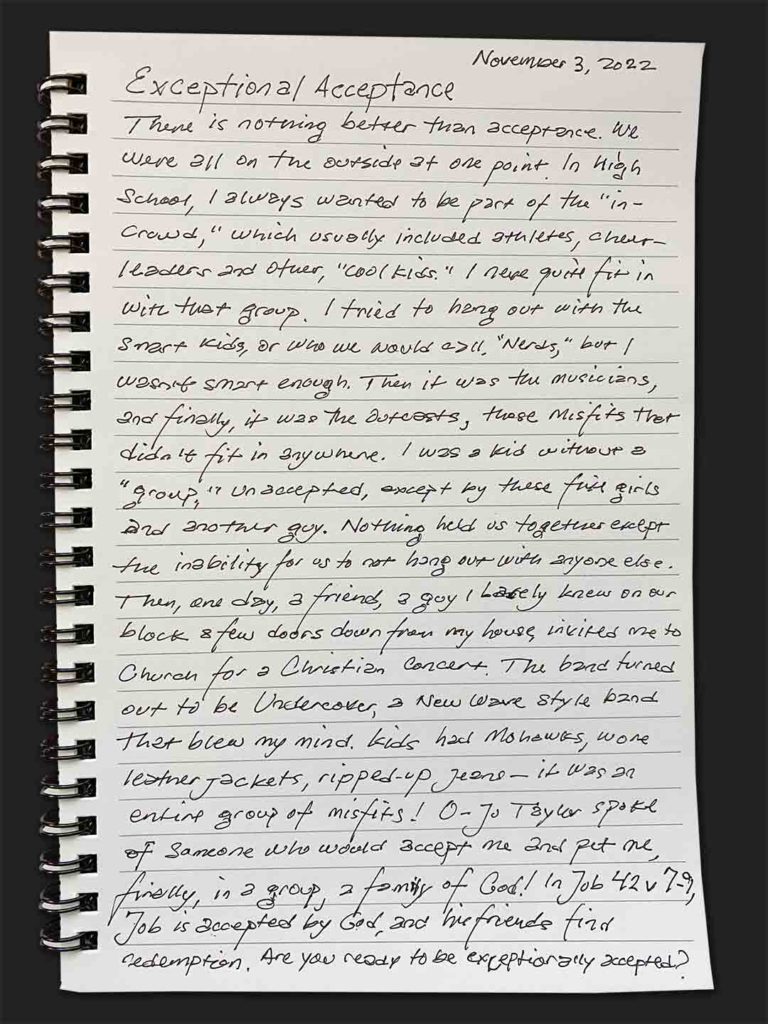 November 3, 2022
Exceptional Acceptance
There is nothing better than acceptance. We
were all on the outside at one point. In High
School, I always wanted to be part of the "in-
Crowd," which usually included athletes, cheer-
leaders and other, "cool kids." I never quite fit in
with that group. I tried to hang out with the
smart kids, or who we would call, "Nerds," but I
wasn't smart enough. Then it was the musicians,
and finally, it was the outcasts, these misfits that
didn't fit in anywhere. I was a kid without a
"group," unaccepted, except by these five girls
and another guy. Nothing held us together except
the inability for us to not hang out with anyone else.
Then, one day, a friend, a guy I barely knew on our
block a few doors down from my house, invited me to
Church for a Christian Concert. The band turned
out to be Undercover, a New Wave style band
that blew my mind. Kids had Mohawks, wore
leather jackets, ripped-up jeans — it was an
entire group of misfits! O-Jo Taylor spoke
of Someone who would accept me and put me,
finally, in a group, a family of God! In Job 42 v 7-9,
Job is accepted by God, and his friends find
redemption. Are you ready to be exceptionally accepted?